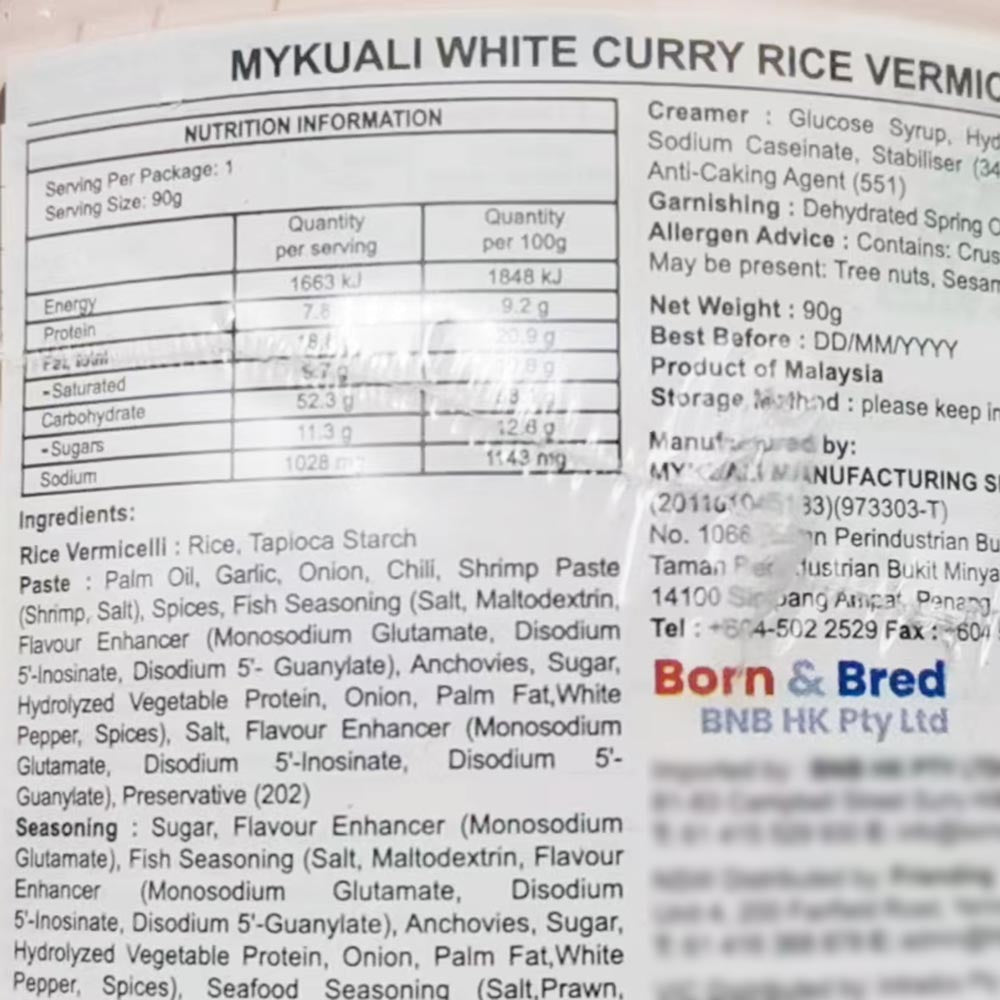 MYKUALI WHITE CURRY RICE VERMIC
NUTRITION INFORMATION
Serving Per Package: 1
Serving Size: 90g
Quantity per serving Quantity per 100g
Energy 1663 kJ 1848 kJ
Protein 7.8 9.2 g
Fat, total 20.9 g
-Saturated
Carbohydrate 52.3 g
-Sugars 11.3 g 12.6 g
Sodium 1028 mg 1143 mg
Ingredients:
Rice Vermicelli : Rice, Tapioca Starch
Paste : Palm Oil, Garlic, Onion, Chili, Shrimp Paste
(Shrimp, Salt), Spices, Fish Seasoning (Salt, Maltodextrin,
Flavour Enhancer (Monosodium Glutamate, Disodium
5'-Inosinate, Disodium 5'- Guanylate), Anchovies, Sugar,
Hydrolyzed Vegetable Protein, Onion, Palm Fat,White
Pepper, Spices), Salt, Flavour Enhancer (Monosodium
Glutamate, Disodium 5'-Inosinate, Disodium 5'-
Guanylate), Preservative (202)
Seasoning : Sugar, Flavour Enhancer (Monosodium
Glutamate), Fish Seasoning (Salt, Maltodextrin, Flavour
Enhancer (Monosodium Glutamate, Disodium
5'-Inosinate, Disodium 5'-Guanylate), Anchovies, Sugar,
Hydrolyzed Vegetable Protein, Onion, Palm Fat,White
Pepper, Spices), Seafood Seasoning (Salt,Prawn,
Creamer : Glucose Syrup, Hyd
Sodium Caseinate, Stabiliser (34
Anti-Caking Agent (551)
Garnishing : Dehydrated Spring O
Allergen Advice : Contains: Crus
May be present: Tree nuts, Sesam
Net Weight : 90g
Best Before : DD/MM/YYYY
Product of Malaysia
Storage Method : please keep in
Manufactured by:
MANUFACTURING S
83)(973303-T)
No. 1066 Perindustrian Bu
Taman Bukit Minya
14100 Ampat, Penang,
Tel : +604-502 2529 Fax : +604
Born & Bred
BNB HK Pty Ltd